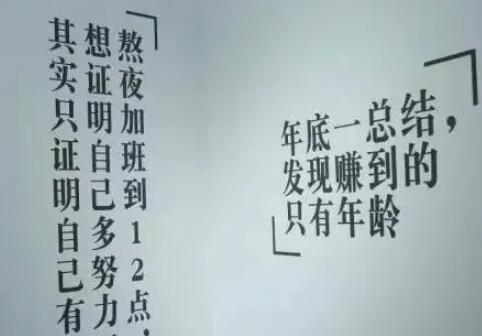 熬夜加班到12点，
想证明自己多努力
其实只证明自己有
年底一总结，
发现赚到的
只有年龄